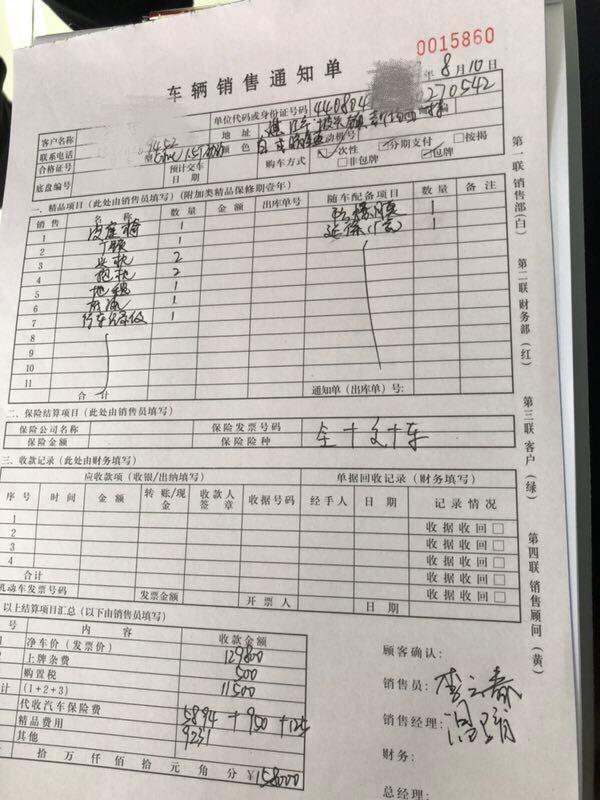 0015860
车辆销售通知单
年8月10日
客户名称 单位代码或身份证号码 440804 270542
联系电话 9452 地址
合格证号 型 颜色 发动机号
底盘编号 预计交车日期 购车方式 一次性 分期支付 按揭 非包牌 包牌
一、精品项目（此处由销售员填写）（附加类精品保修期壹年）
销售 名称 数量 金额 出库单号 随车配备项目 数量 备注
1 皮座椅 1 1
2 1 1
3 头枕 2
4 抱枕 2
5 地毯 1
6 1
7 1
8
9
10
11
合计 通知单（出库单）号：
二、保险结算项目（此处由销售员填写）
保险公司名称 保险发票号码
保险金额 保险险种 全+交+车
三、收款记录（此处由财务填写）
应收款项（收银/出纳填写） 单据回收记录（财务填写）
序号 时间 金额 转账/现金 收款人签章 收据号码 经手人 日期 记录情况
1 收据收回□
2 收据收回□
3 收据收回□
4 收据收回□
合计 收据收回□
机动车发票号码 发票金额 开票人 日期
以上结算项目汇总（以下由销售员填写）
号 内容 收款金额
净车价（发票价） 129800
上牌杂费 500
购置税 11500
计 (1+2+3)
代收汽车保险费 5894+950+
精品费用 9231
其他
拾万仟佰拾元角分￥158000
顾客确认：
销售员：
销售经理：
财务：
总经理：
第一联 销售部(白) 第二联 财务部(红) 第三联 客户(绿) 第四联 销售顾问(黄)